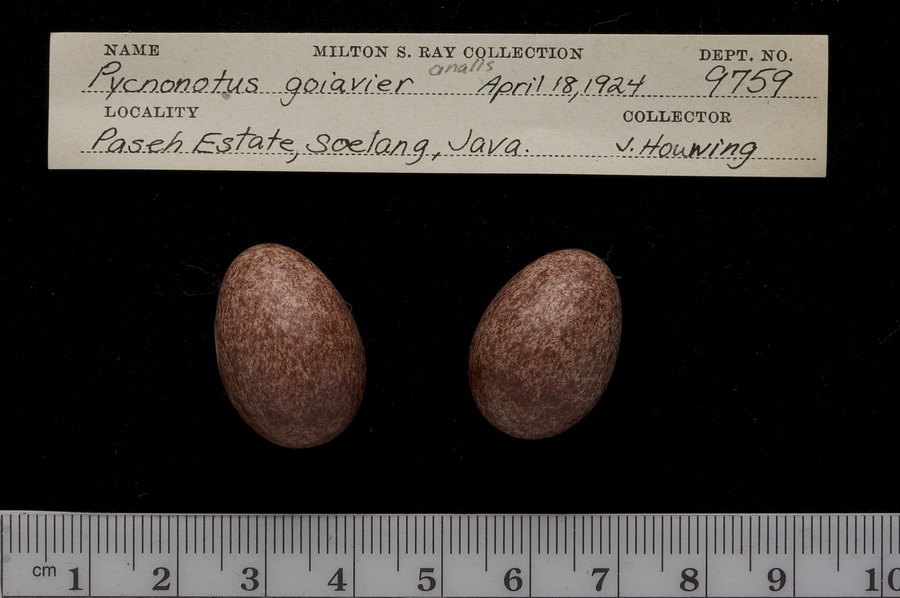 NAME MILTON S. RAY COLLECTION DEPT. NO.
Pycnonotus goiavier analis April 18, 1924 9759
LOCALITY COLLECTOR
Paseh Estate, Soelang, Java. J. Houwing
cm 1 2 3 4 5 6 7 8 9 10